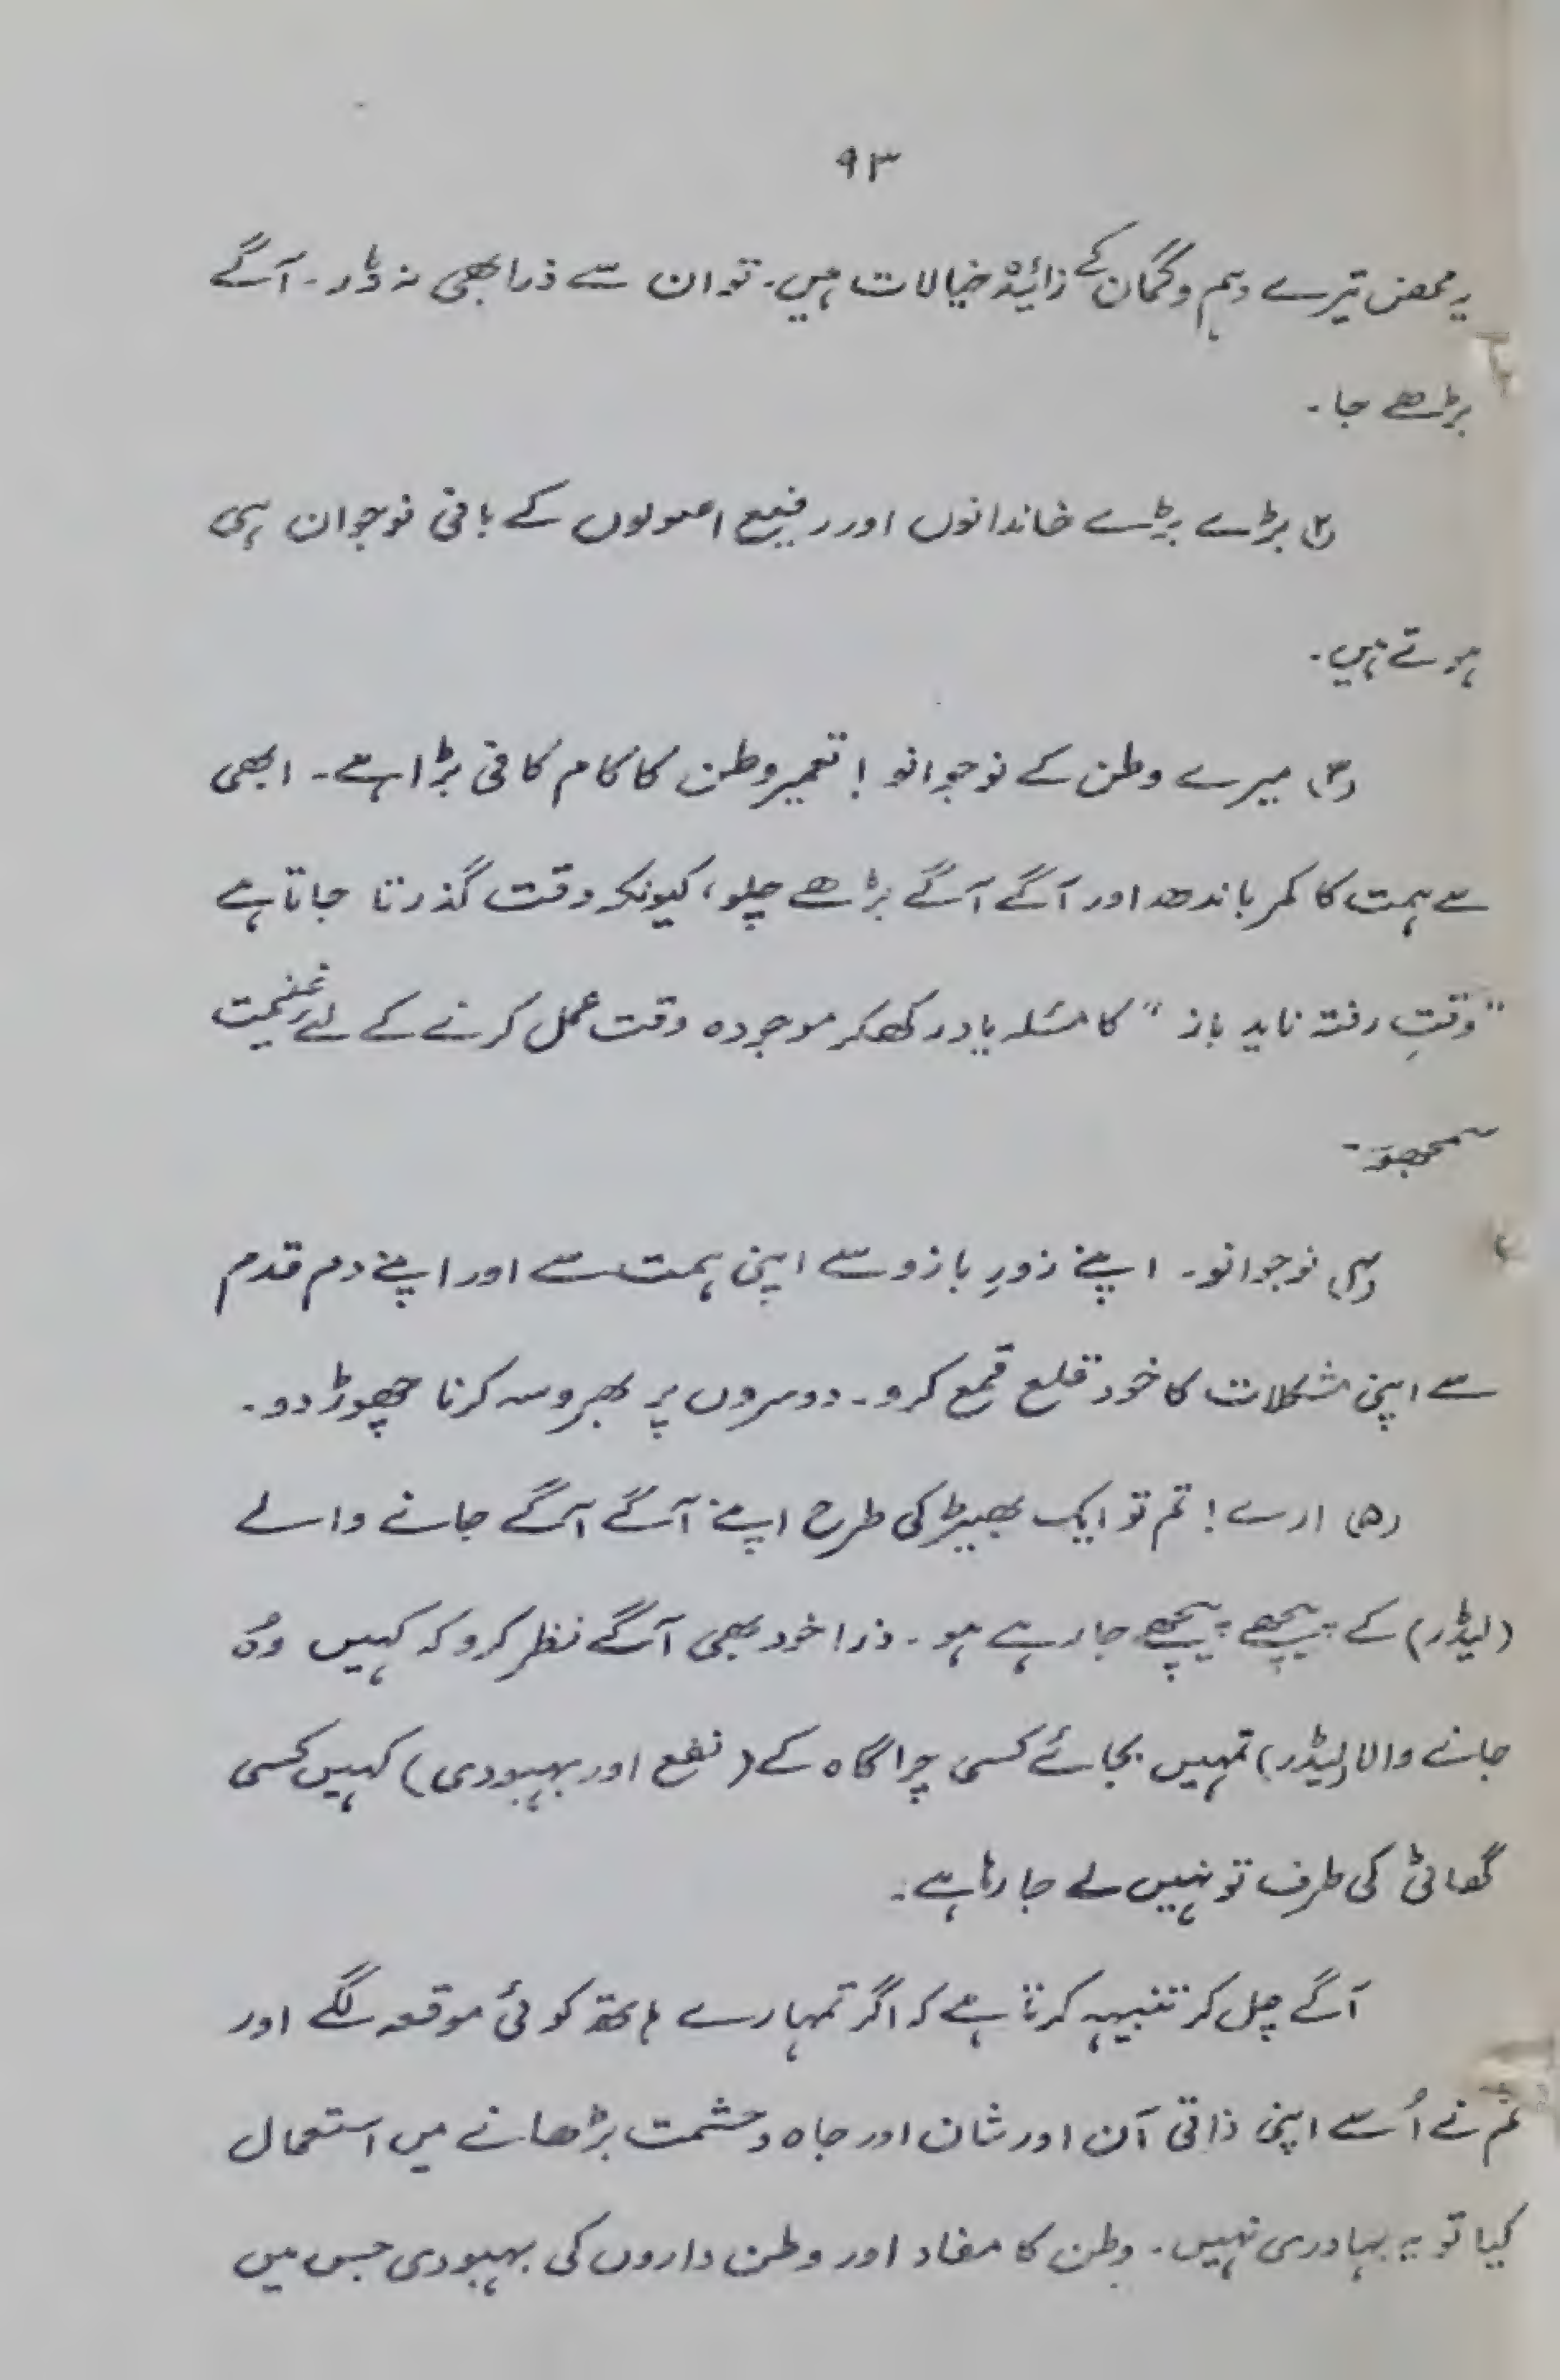 ۹۳
یہ محض تیرے وہم و گمان کے زائیدہ خیالات ہیں۔ تو ان سے ذرا بھی نہ ڈر۔ آگے
بڑھے جا۔
(۲) بڑے بڑے خاندانوں اور رفیع اصولوں کے بانی نوجوان ہی
ہوتے ہیں۔
(۳) میرے وطن کے نوجوانو! تعمیر وطن کا کام کافی بڑا ہے۔ ابھی
سے ہمت کا کمر باندھ اور آگے آگے بڑھے چلو، کیونکہ وقت گذرتا جاتا ہے
"وقتِ رفتہ ناید باز" کا مسٔلہ یاد رکھکر موجودہ وقت عمل کرنے کے لیے غنیمت
سمجھو۔
(۴) نوجوانو۔ اپنے زورِ بازو سے اپنی ہمت سے اور اپنے دم قدم
سے اپنی مشکلات کا خود قلع قمع کرو۔ دوسروں پر بھروسہ کرنا چھوڑ دو۔
(۵) ارے! تم تو ایک بھیڑ کی طرح اپنے آگے آگے جانے والے
(لیڈر) کے پیچھے پیچھے جا رہے ہو۔ ذرا خود بھی آگے نظر کرو کہ کہیں وہُ
جانے والا (لیڈر) تمہیں بجائے کسی چراگاہ کے (نفع اور بہبودی) کہیں کسی
گھاٹی کی طرف تو نہیں لے جا رہا ہے۔
آگے چل کر تنبیہہ کرتا ہے کہ اگر تمہارے ہاتھ کوئی موقعہ لگے اور
تم نے اُسے اپنی ذاتی آن اور شان اور جاہ و حشمت بڑھانے میں استعمال
کیا تو یہ بہادری نہیں۔ وطن کا مفاد اور وطن داروں کی بہبودی جس میں